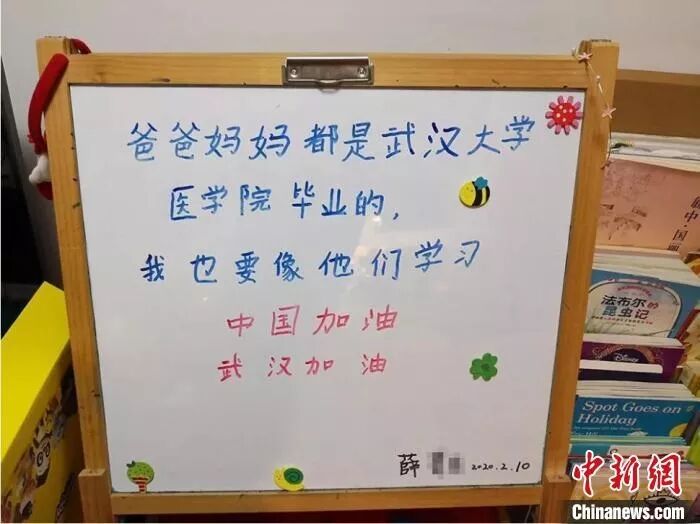 爸爸妈妈都是武汉大学
医学院毕业的,
我也要像他们学习
中国加油
武汉加油
薛
2020.2.10
法布尔的
昆虫记
Disney
Spot Goes on
Holiday
中新网
Chinanews.com